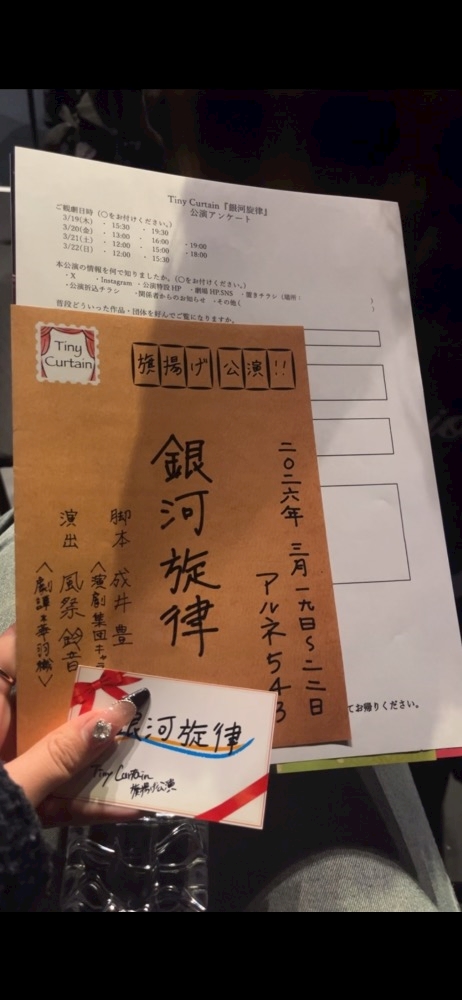 Tiny Curtain『銀河旋律』
公演アンケート
ご観劇日時（〇をお付けください。）
3/19(木) ・ 15:30 ・ 19:30
3/20(金) ・ 13:00 ・ 16:00
3/21(土) ・ 12:00 ・ 15:30 ・19:00
3/22(日) ・ 12:00 ・ 15:30 ・18:00
本公演の情報を何で知りましたか。（〇をお付けください。）
・X ・Instagram ・公演特設HP ・劇場HP,SNS ・置きチラシ（場所： ）
・公演折込チラシ ・関係者からのお知らせ ・その他（ ）
普段どういった作品・団体を好んでご覧になりますか。
てお帰りください。
Tiny
Curtain
旗揚げ公演!!
二〇二六年 三月一九日～二二日
アルネ543
銀河旋律
脚本 成井豊
〈演劇集団キャラ
演出 風祭鈴音
銀河旋律
Tiny Curtain
旗揚げ公演